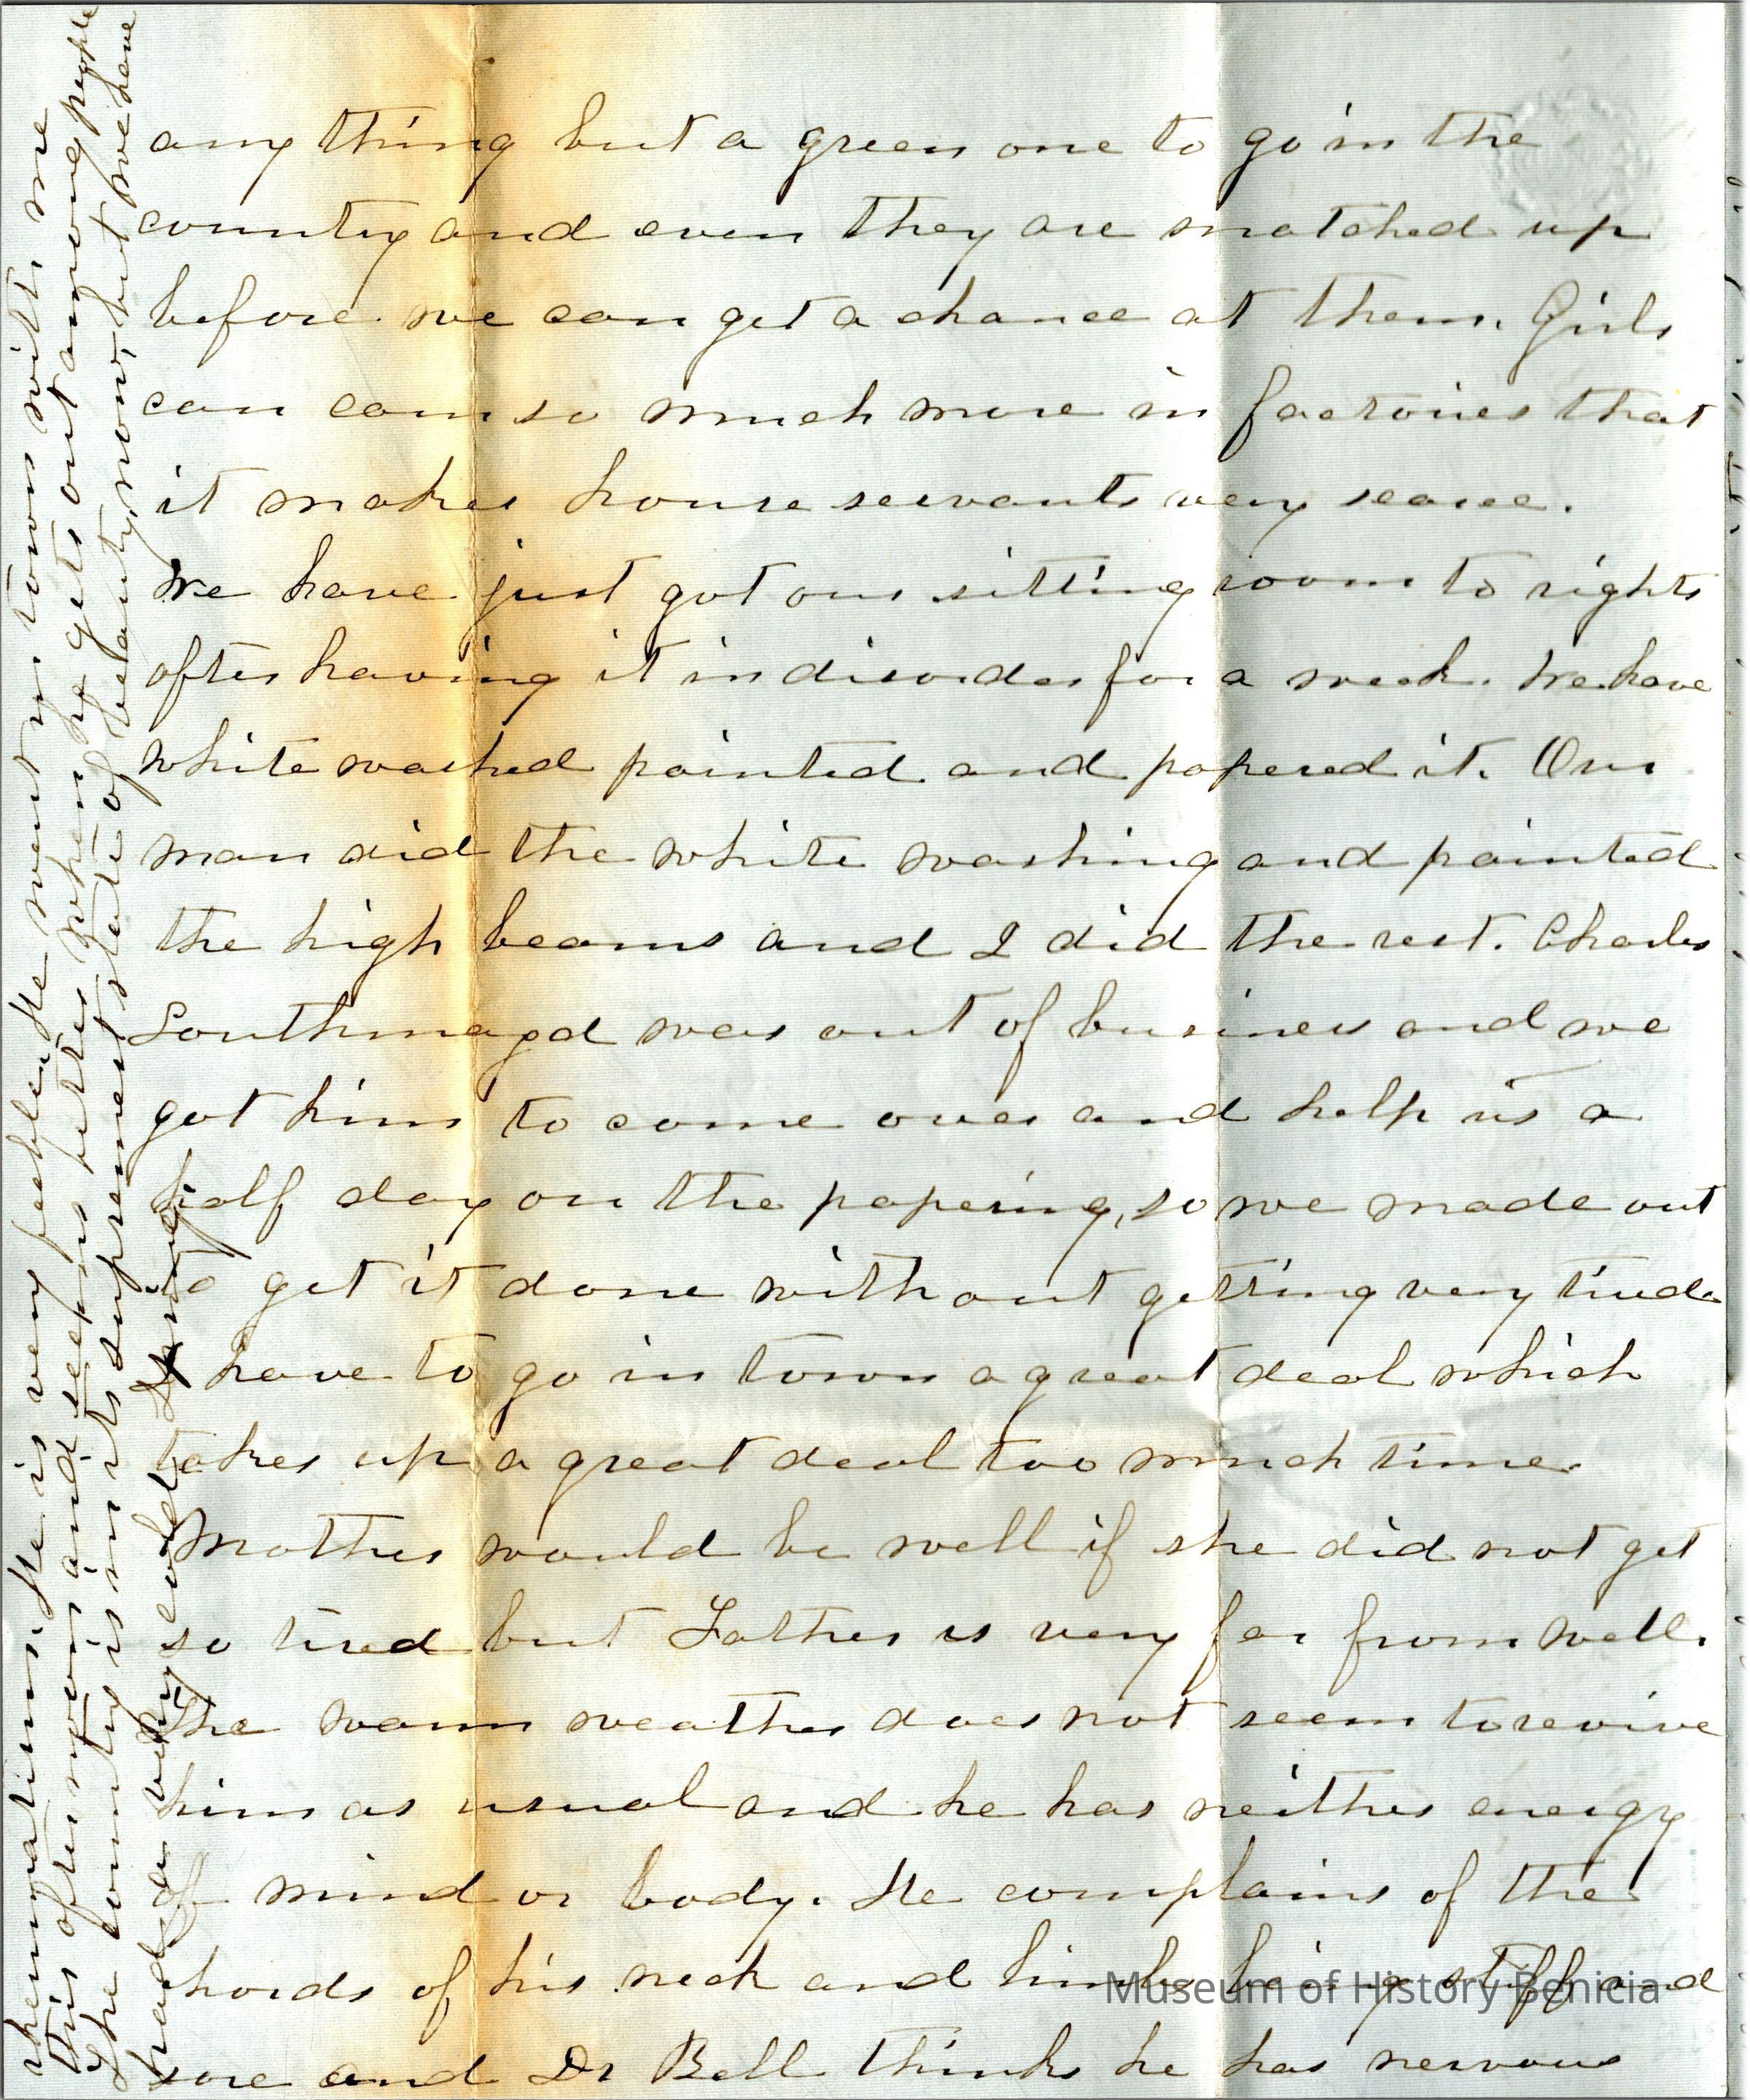 any thing but a green one to go in the
country and even they are snatched up
before we can get a chance at them. Girls
can earn so much more in factories that
it makes house servants very scarce.
We have just got our sitting room to rights
after having it in disorder for a week. We have
white washed painted and papered it. Our
man did the white washing and painted
the high beams and I did the rest. Charles
Southmayd was out of business and we
got him to come over and help us a
half day on the papering, so we made out
to get it done without getting very tired.
I have to go in town a great deal which
takes up a great deal too much time.
Mother would be well if she did not get
so tired but Father is very far from well.
The warm weather does not seem to revive
him as usual and he has neither energy
of mind or body. He complains of the
chords of his neck and limbs being stiff and
sore and Dr Bell thinks he has nervous
rheumatism. He is very feeble. He went in town with me
this afternoon and seems better when he gets out among people
The country is in its supremest state of beauty, now, but we have
had a very cold
Museum of History Benicia